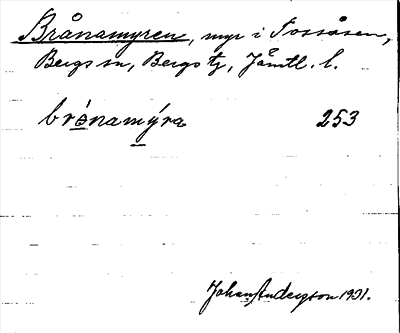 Brånamyren, myr i Fossåsen,
Bergs sn, Bergs tg, Jämtl. l.
brånamýra 253
Johan Anderson 1931.